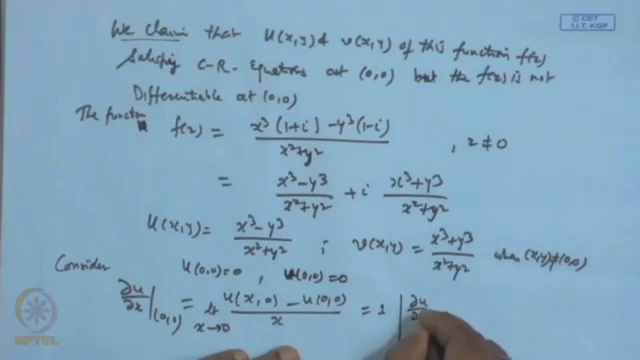 © CET
I.I.T. KGP
We claim that u(x,y) & v(x,y) of this function f(z)
Satisfy C-R. Equations at (0,0) but the f(z) is not
Differentiable at (0,0)
The function f(z) = x³(1+i) - y³(1-i) / x²+y² , z ≠ 0
= x³-y³ / x²+y² + i x³+y³ / x²+y²
u(x,y) = x³-y³ / x²+y² ; v(x,y) = x³+y³ / x²+y² when (x,y)≠(0,0)
u(0,0)=0 , v(0,0)=0
Consider
∂u/∂x |(0,0) = lt x→0 u(x,0) - u(0,0) / x = 1 | ∂u
NPTEL